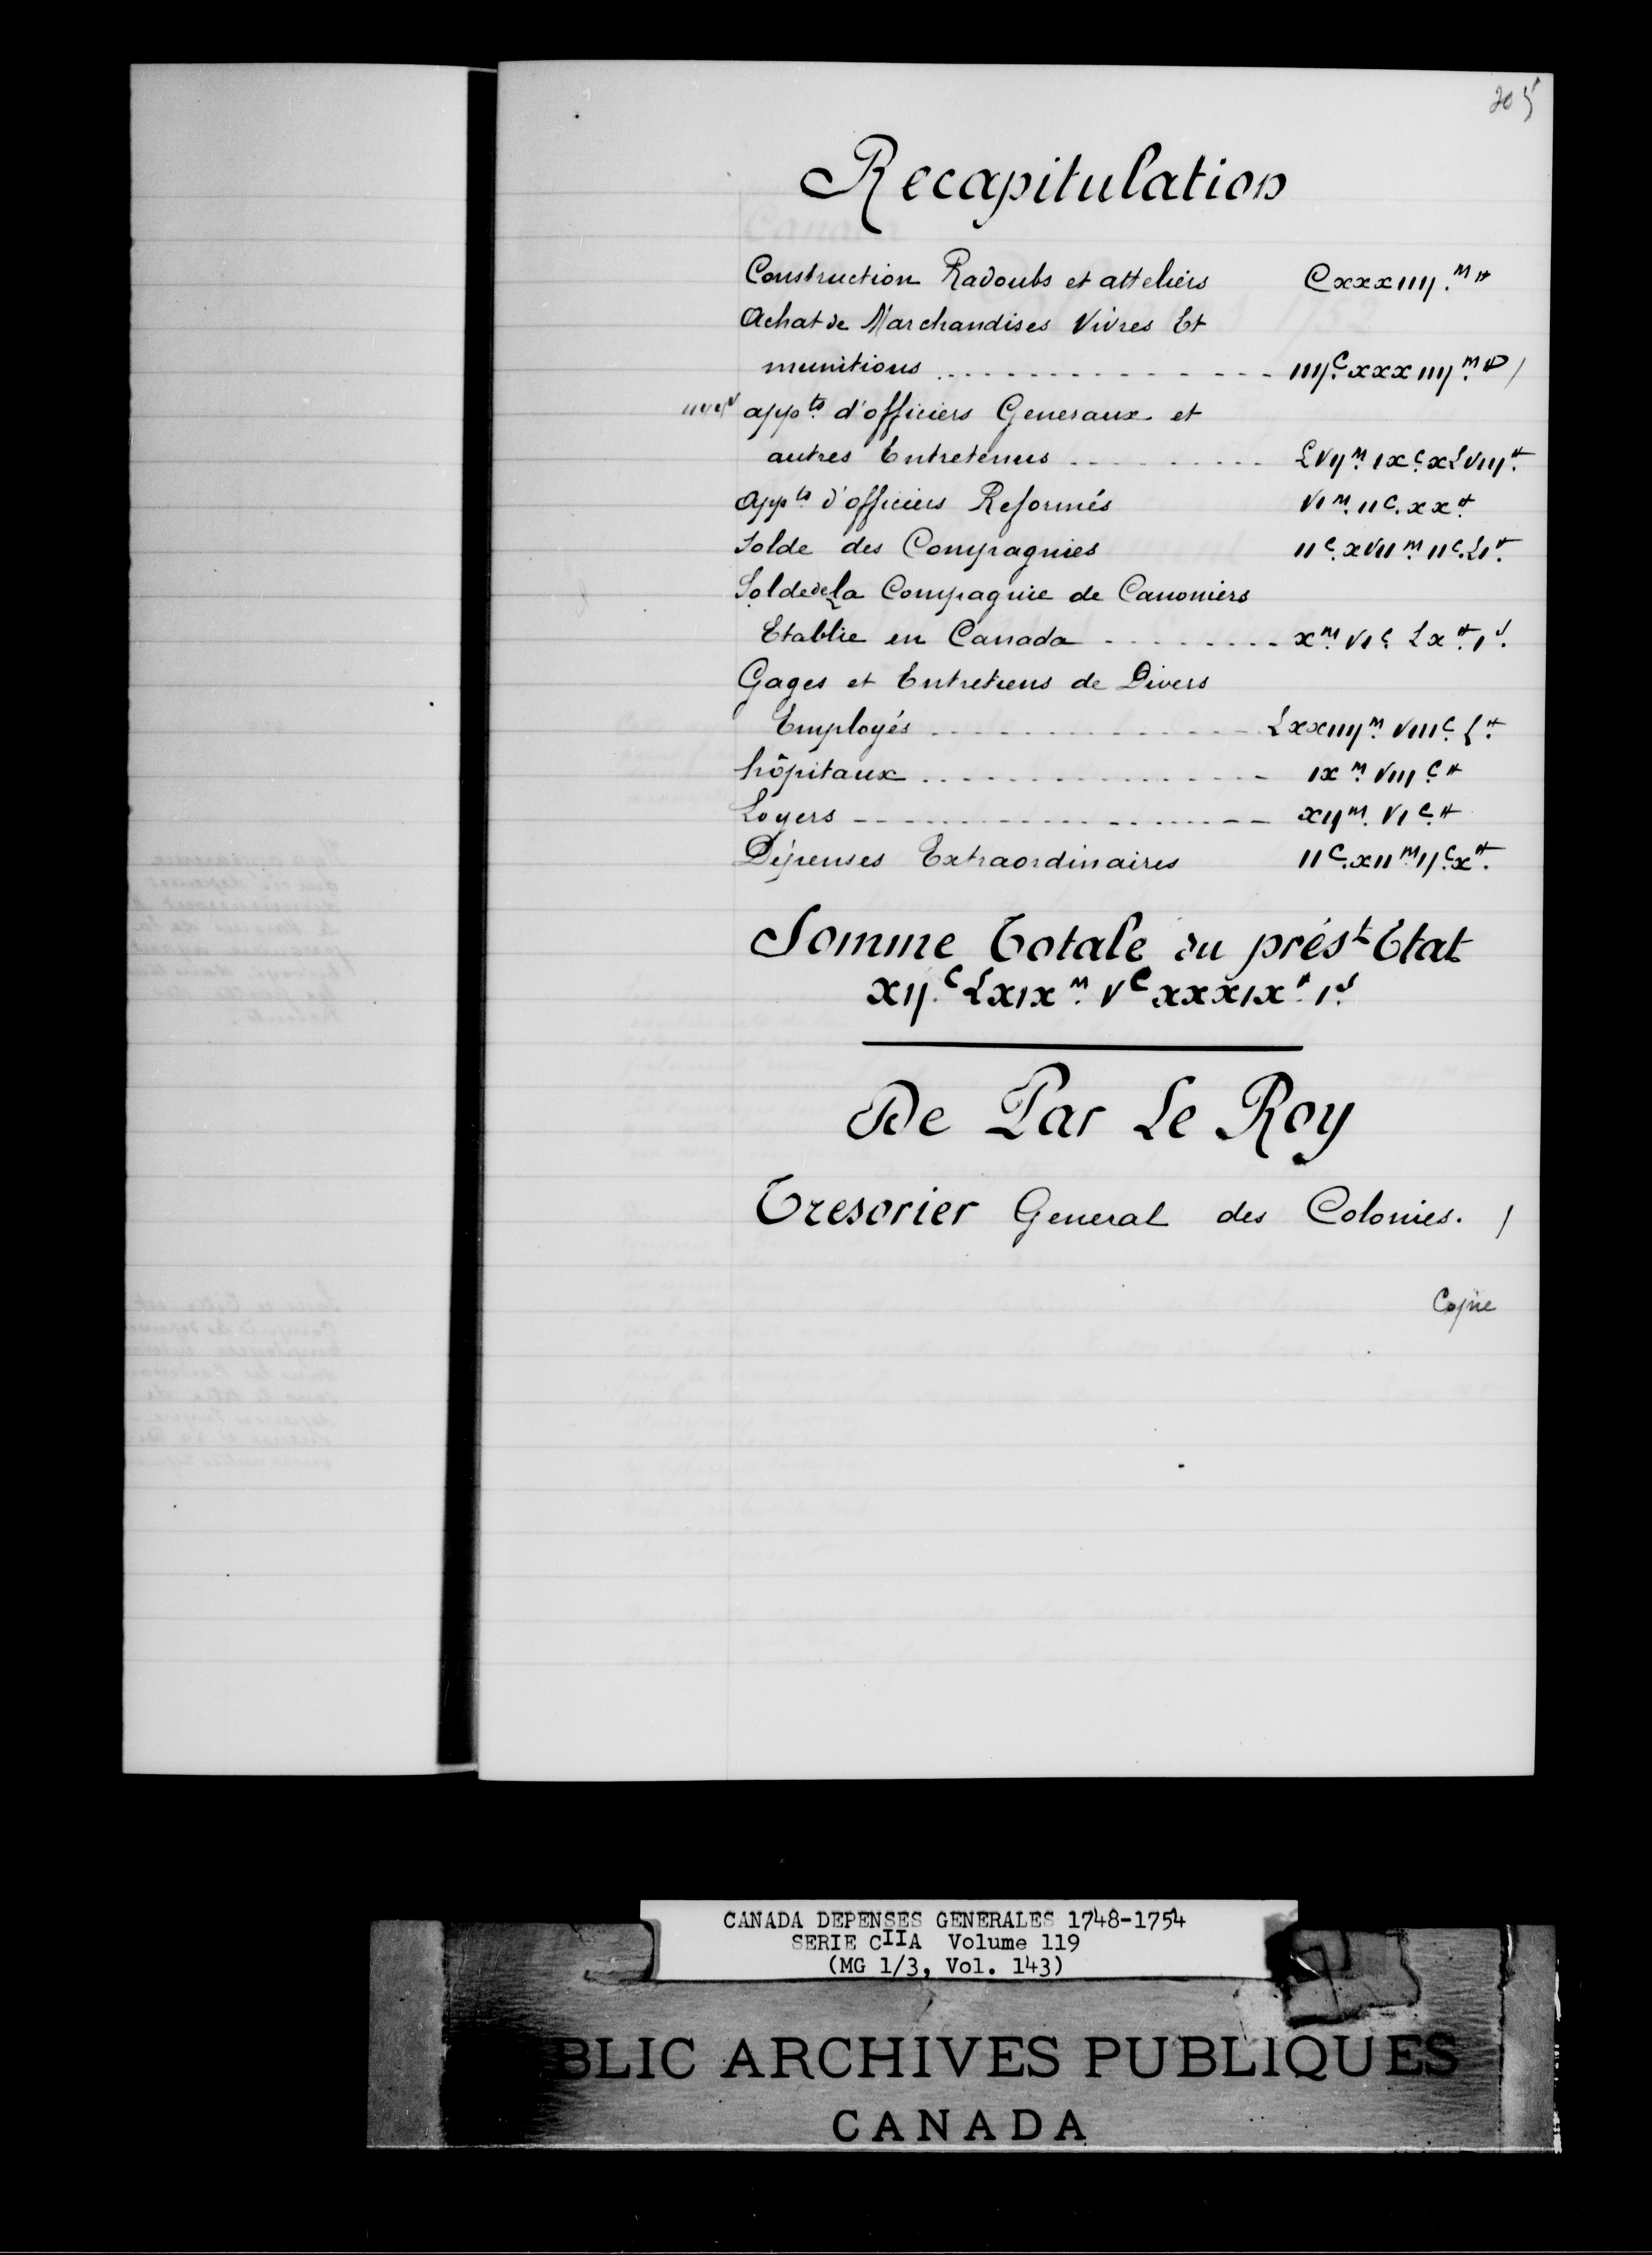 205
Recapitulation
Construction Radoubs et atteliers Cxxxiiij.ᴹ ₶
Achat de Marchandises Vivres Et
munitions ............... iiijᶜ.xxxiiij.ᴹ ₶ /
appᵗˢ d'officiers Generaux et
autres Entretenus .......... Lvijᴹ.ixᶜ.xLviij₶
appᵗˢ d'officiers Reformés viᴹ.iiᶜ.xx₶
Solde des Compagnies iiᶜ.xviiᴹ.iiᶜ.Li₶
Solde de la Compagnie de Canoniers
Etablie en Canada ......... xᴹ.viᶜ.Lx₶.iˢ.
Gages et Entretiens de Divers
Employés ............... Lxxiiijᴹ.viiiᶜ.L₶
hôpitaux ............... ixᴹ.viijᶜ.₶
Loyers ................. xijᴹ.viᶜ.₶
Dépenses Extraordinaires iiᶜ.xiiᴹ.ijᶜ.x₶.
Somme Totale du présᵗ Etat
xij.ᶜLxixᴹ.vᶜxxxix₶.iˢ
De Par Le Roy
Tresorier General des Colonies. /
Copie
CANADA DEPENSES GENERALES 1748-1754
SERIE CIIA Volume 119
(MG 1/3, Vol. 143)
BLIC ARCHIVES PUBLIQUES
CANADA